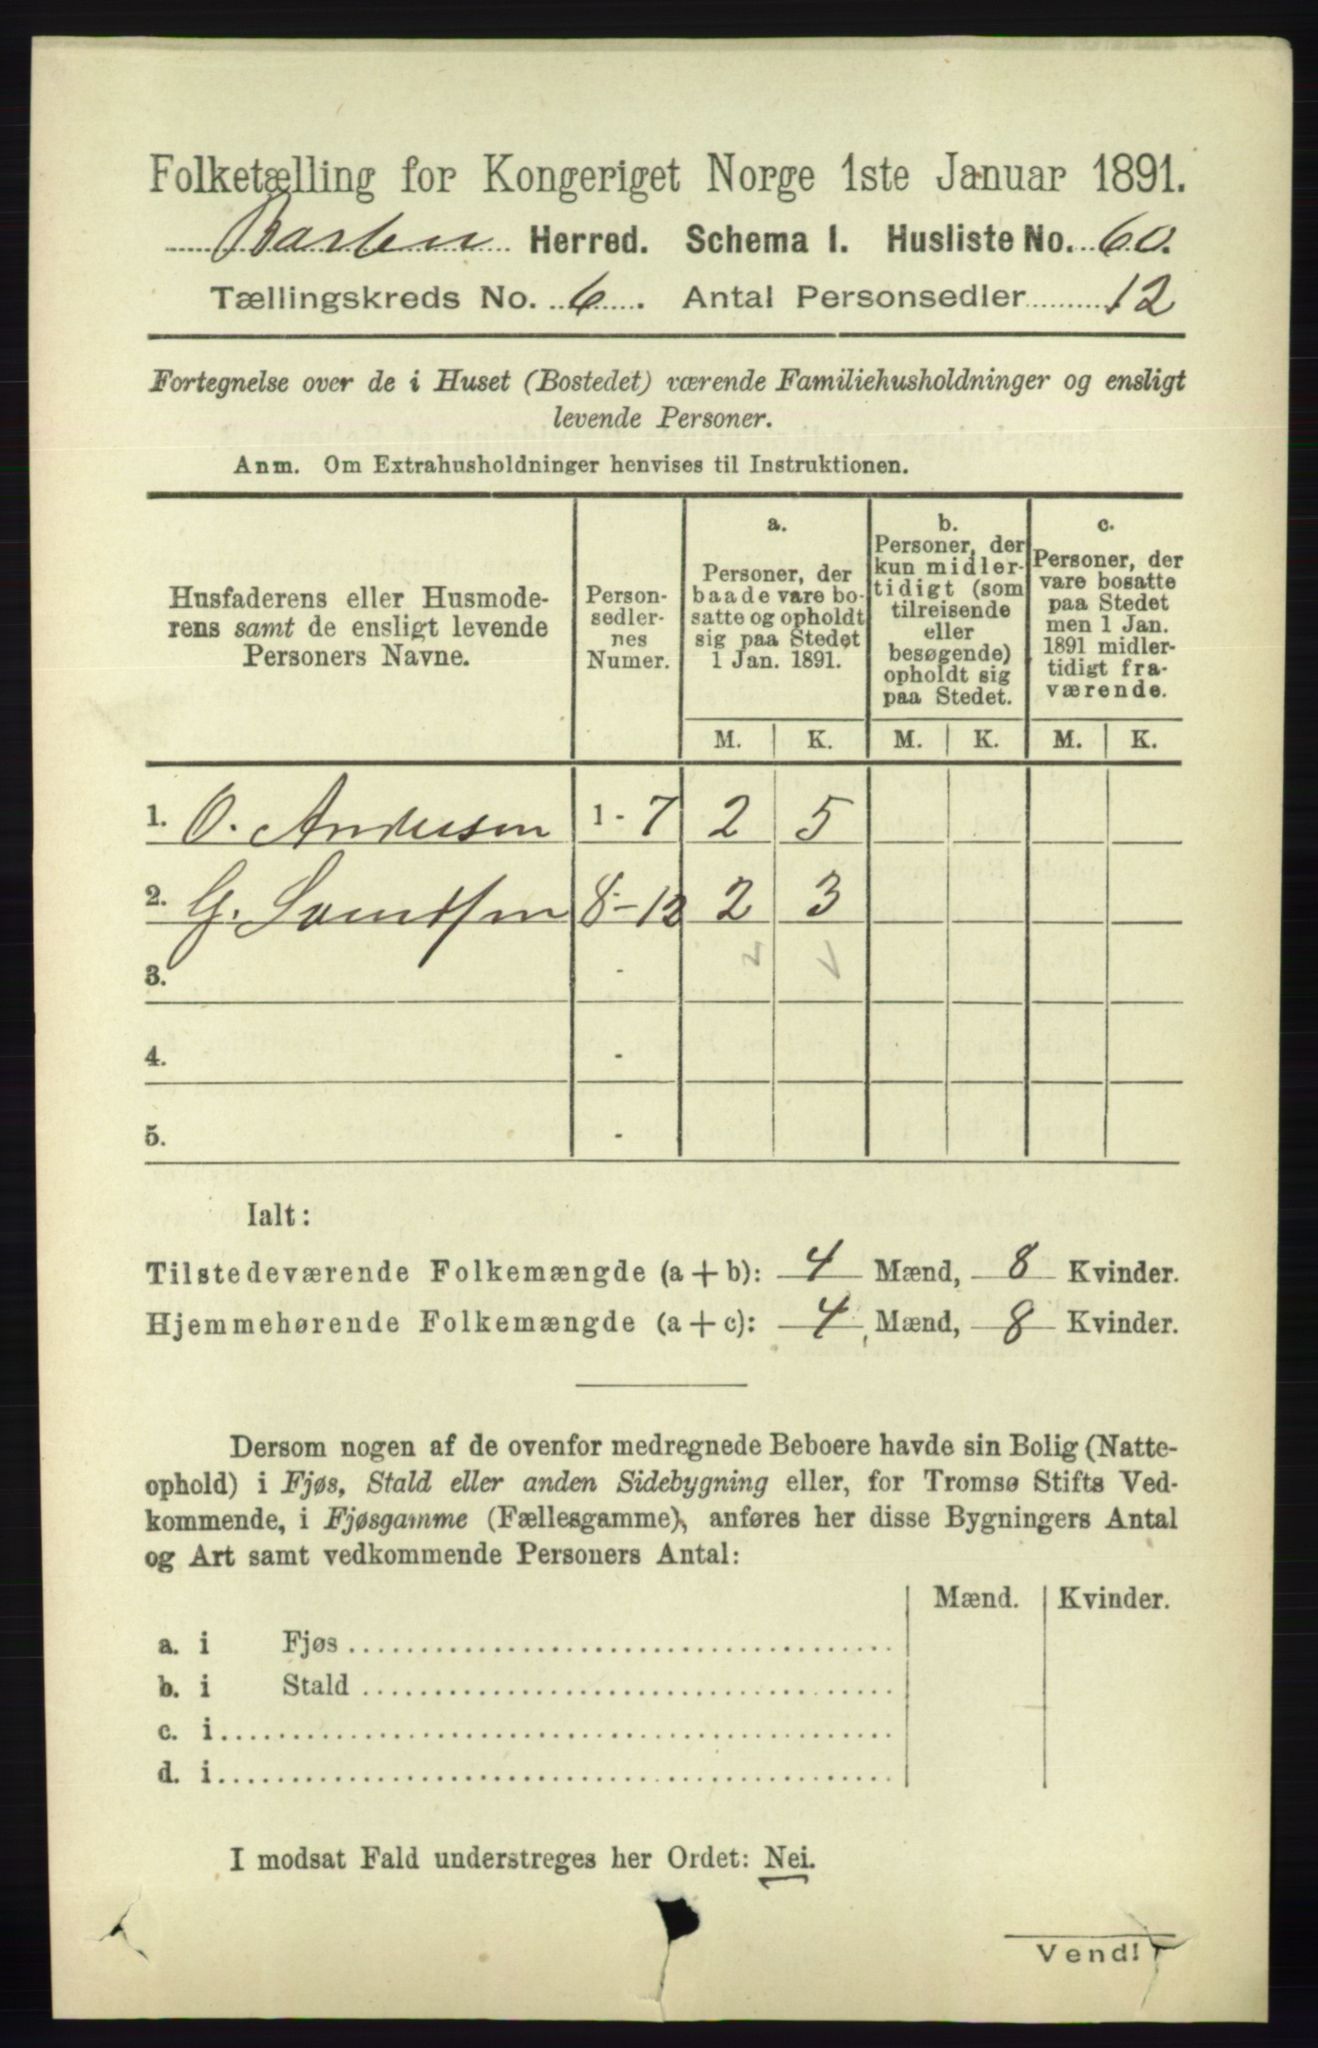 Folketælling for Kongeriget Norge 1ste Januar 1891.
Barbu Herred. Schema I. Husliste No. 60.
Tællingskreds No. 6. Antal Personsedler 12
Fortegnelse over de i Huset (Bostedet) værende Familiehusholdninger og ensligt
levende Personer.
Anm. Om Extrahusholdninger henvises til Instruktionen.
Husfaderens eller Husmode-
rens samt de ensligt levende
Personers Navne.
Person-
sedler-
nes
Numer.
a.
Personer, der
baade vare bo-
satte og opholdt
sig paa Stedet
1 Jan. 1891.
b.
Personer, der
kun midler-
tidigt (som
tilreisende
eller
besøgende)
opholdt sig
paa Stedet.
c.
Personer, der
vare bosatte
paa Stedet
men 1 Jan.
1891 midler-
tidigt fra-
værende.
M. K. M. K. M. K.
1. O. Andersen 1-7 2 5
2. G. 8-12 2 3
3. -
4. -
5. -
Ialt:
Tilstedeværende Folkemængde (a+b): 4 Mænd, 8 Kvinder.
Hjemmehørende Folkemængde (a+c): 4 Mænd, 8 Kvinder.
Dersom nogen af de ovenfor medregnede Beboere havde sin Bolig (Natte-
ophold) i Fjøs, Stald eller anden Sidebygning eller, for Tromsø Stifts Ved-
kommende, i Fjøsgamme (Fællesgamme), anføres her disse Bygningers Antal
og Art samt vedkommende Personers Antal:
Mænd. Kvinder.
a. i Fjøs
b. i Stald
c. i
d. i
I modsat Fald understreges her Ordet: Nei.
Vend!